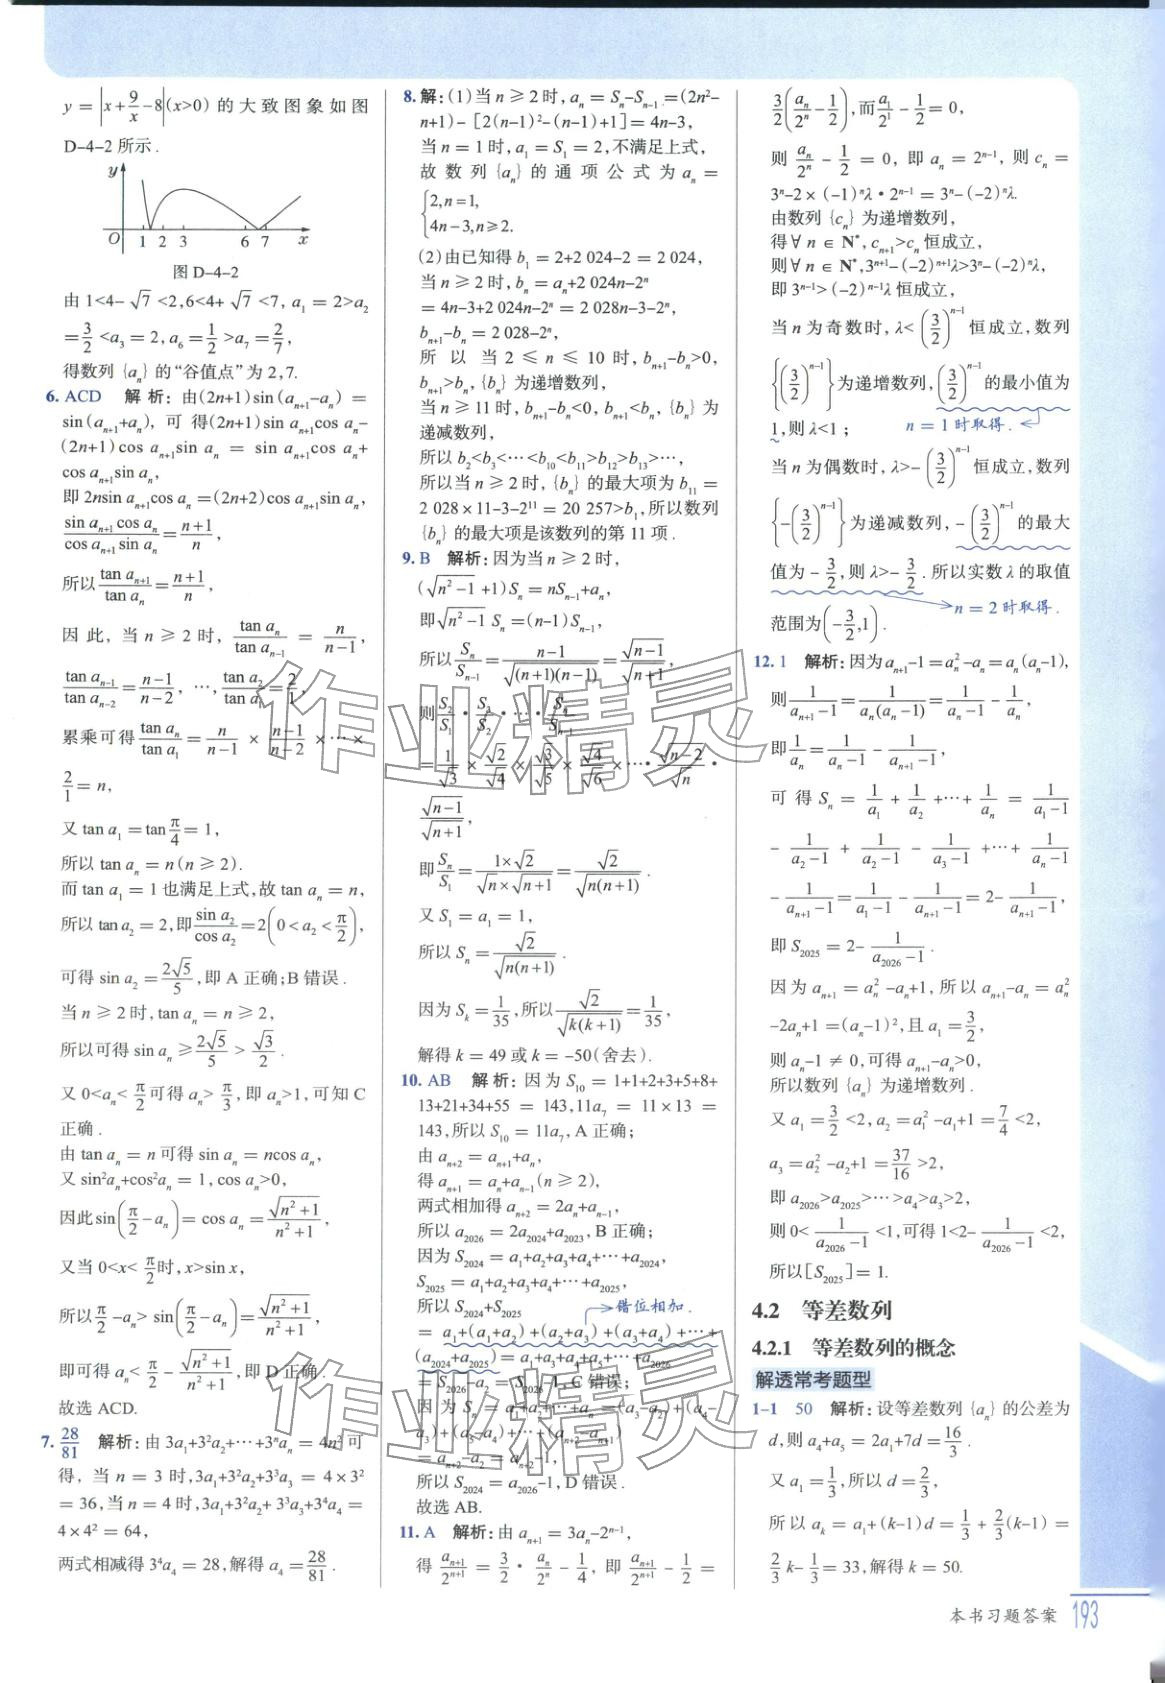 y = |x+9/x-8|(x>0) 的大致图象如图
D-4-2 所示.
y
O 1 2 3 6 7 x
图 D-4-2
由 1<4-√7<2,6<4+√7<7, a₁ = 2>a₂
= 3/2 <a₃ = 2, a₆ = 1/2 >a₇ = 2/7,
得数列 {aₙ} 的“谷值点”为 2,7.
6. ACD 解析: 由(2n+1)sin(aₙ₊₁-aₙ) =
sin(aₙ₊₁+aₙ), 可得(2n+1)sin aₙ₊₁cos aₙ-
(2n+1)cos aₙ₊₁sin aₙ = sin aₙ₊₁cos aₙ+
cos aₙ₊₁sin aₙ,
即 2nsin aₙ₊₁cos aₙ =(2n+2)cos aₙ₊₁sin aₙ,
(sin aₙ₊₁cos aₙ)/(cos aₙ₊₁sin aₙ) = (n+1)/n,
所以 (tan aₙ₊₁)/(tan aₙ) = (n+1)/n,
因此,当 n≥2 时, (tan aₙ)/(tan aₙ₋₁) = n/(n-1),
(tan aₙ₋₁)/(tan aₙ₋₂) = (n-1)/(n-2), …, (tan a₂)/(tan a₁) = 2/1,
累乘可得 (tan aₙ)/(tan a₁) = n/(n-1) × (n-1)/(n-2) ×…×
2/1 = n,
又 tan a₁ = tan π/4 = 1,
所以 tan aₙ = n(n≥2).
而 tan a₁ = 1 也满足上式,故 tan aₙ = n,
所以 tan a₂ = 2,即 (sin a₂)/(cos a₂) = 2(0<a₂<π/2),
可得 sin a₂ = 2√5/5,即 A 正确;B 错误.
当 n≥2 时,tan aₙ = n≥2,
所以可得 sin aₙ ≥ 2√5/5 > √3/2.
又 0<aₙ< π/2 可得 aₙ> π/3,即 aₙ>1,可知 C
正确.
由 tan aₙ = n 可得 sin aₙ = ncos aₙ,
又 sin²aₙ+cos²aₙ = 1, cos aₙ>0,
因此 sin(π/2-aₙ) = cos aₙ = √(n²+1)/(n²+1),
又当 0<x< π/2 时,x>sin x,
所以 π/2-aₙ> sin(π/2-aₙ) = √(n²+1)/(n²+1),
即可得 aₙ< π/2 - √(n²+1)/(n²+1),即 D 正确.
故选 ACD.
7. 28/81 解析: 由 3a₁+3²a₂+…+3ⁿaₙ = 4n² 可
得,当 n = 3 时,3a₁+3²a₂+3³a₃ = 4×3²
= 36,当 n = 4 时,3a₁+3²a₂+ 3³a₃+3⁴a₄ =
4×4² = 64,
两式相减得 3⁴a₄ = 28,解得 a₄ = 28/81.
8. 解:(1)当 n≥2 时, aₙ = Sₙ-Sₙ₋₁ =(2n²-
n+1)-[2(n-1)²-(n-1)+1]= 4n-3,
当 n = 1 时, a₁ = S₁ = 2,不满足上式,
故数列 {aₙ} 的通项公式为 aₙ =
{2,n=1,
4n-3,n≥2.
(2)由已知得 b₁ = 2+2 024-2 = 2 024,
当 n≥2 时, bₙ = aₙ+2 024n-2ⁿ
= 4n-3+2 024n-2ⁿ = 2 028n-3-2ⁿ,
bₙ₊₁-bₙ = 2 028-2ⁿ,
所以当 2≤n≤10 时, bₙ₊₁-bₙ>0,
bₙ₊₁>bₙ, {bₙ} 为递增数列,
当 n≥11 时, bₙ₊₁-bₙ<0, bₙ₊₁<bₙ, {bₙ} 为
递减数列,
所以 b₂<b₃<…<b₁₀<b₁₁>b₁₂>b₁₃>…,
所以当 n≥2 时, {bₙ} 的最大项为 b₁₁ =
2 028×11-3-2¹¹ = 20 257>b₁,所以数列
{bₙ} 的最大项是该数列的第 11 项.
9. B 解析:因为当 n≥2 时,
(√(n²-1) +1)Sₙ = nSₙ₋₁+aₙ,
即 √(n²-1) Sₙ =(n-1)Sₙ₋₁,
所以 Sₙ/Sₙ₋₁ = (n-1)/√((n+1)(n-1)) = √(n-1)/√(n+1),
则 S₂/S₁ · S₃/S₂ ·…· Sₙ/Sₙ₋₁
= 1/√3 × √2/√4 × √3/√5 × √4/√6 ×…· √(n-2)/√n ·
√(n-1)/√(n+1),
即 Sₙ/S₁ = (1×√2)/(√n×√(n+1)) = √2/√(n(n+1)).
又 S₁ = a₁ = 1,
所以 Sₙ = √2/√(n(n+1)).
因为 Sₖ = 1/35,所以 √2/√(k(k+1)) = 1/35,
解得 k = 49 或 k = -50(舍去).
10. AB 解析: 因为 S₁₀ = 1+1+2+3+5+8+
13+21+34+55 = 143,11a₇ = 11×13 =
143,所以 S₁₀ = 11a₇, A 正确;
由 aₙ₊₂ = aₙ₊₁+aₙ,
得 aₙ₊₁ = aₙ+aₙ₋₁(n≥2),
两式相加得 aₙ₊₂ = 2aₙ+aₙ₋₁,
所以 a₂₀₂₆ = 2a₂₀₂₄+a₂₀₂₃, B 正确;
因为 S₂₀₂₄ = a₁+a₂+a₃+a₄+…+a₂₀₂₄,
S₂₀₂₅ = a₁+a₂+a₃+a₄+…+a₂₀₂₅,
所以 S₂₀₂₄+S₂₀₂₅ 错位相加.
= a₁+(a₁+a₂)+(a₂+a₃)+(a₃+a₄)+…+
(a₂₀₂₄+a₂₀₂₅) = a₁+a₃+a₄+a₅+…+a₂₀₂₆
= S₂₀₂₆-a₂ = S₂₀₂₆-1, C 错误;
因为 Sₙ = a₁+a₂+…+aₙ = (a₃-a₂)+(a₄-
a₃)+(a₅-a₄)+…+(aₙ₊₂-aₙ₊₁)
= aₙ₊₂-a₂ = aₙ₊₂-1,
所以 S₂₀₂₄ = a₂₀₂₆-1, D 错误.
故选 AB.
11. A 解析: 由 aₙ₊₁ = 3aₙ-2ⁿ⁻¹,
得 aₙ₊₁/2ⁿ⁺¹ = 3/2 · aₙ/2ⁿ - 1/4, 即 aₙ₊₁/2ⁿ⁺¹ - 1/2 =
3/2(aₙ/2ⁿ - 1/2),而 a₁/2¹ - 1/2 = 0,
则 aₙ/2ⁿ - 1/2 = 0, 即 aₙ = 2ⁿ⁻¹, 则 cₙ =
3ⁿ-2×(-1)ⁿλ·2ⁿ⁻¹ = 3ⁿ-(-2)ⁿλ.
由数列 {cₙ} 为递增数列,
得∀n∈N*, cₙ₊₁>cₙ 恒成立,
则∀n∈N*,3ⁿ⁺¹-(-2)ⁿ⁺¹λ>3ⁿ-(-2)ⁿλ,
即 3ⁿ⁻¹>(-2)ⁿ⁻¹λ 恒成立,
当 n 为奇数时, λ<(3/2)ⁿ⁻¹ 恒成立,数列
{(3/2)ⁿ⁻¹} 为递增数列, (3/2)ⁿ⁻¹ 的最小值为
1,则 λ<1; n = 1 时取得.
当 n 为偶数时, λ>-(3/2)ⁿ⁻¹ 恒成立,数列
{-(3/2)ⁿ⁻¹} 为递减数列, -(3/2)ⁿ⁻¹ 的最大
值为 -3/2,则 λ>-3/2.所以实数 λ 的取值
n = 2 时取得.
范围为(-3/2,1).
12. 1 解析:因为 aₙ₊₁-1 = aₙ²-aₙ = aₙ(aₙ-1),
则 1/(aₙ₊₁-1) = 1/(aₙ(aₙ-1)) = 1/(aₙ-1) - 1/aₙ,
即 1/aₙ = 1/(aₙ-1) - 1/(aₙ₊₁-1),
可得 Sₙ = 1/a₁ + 1/a₂ +…+ 1/aₙ = 1/(a₁-1)
- 1/(a₂-1) + 1/(a₂-1) - 1/(a₃-1) +…+ 1/(aₙ-1)
- 1/(aₙ₊₁-1) = 1/(a₁-1) - 1/(aₙ₊₁-1) = 2- 1/(aₙ₊₁-1),
即 S₂₀₂₅ = 2- 1/(a₂₀₂₆-1).
因为 aₙ₊₁ = aₙ²-aₙ+1,所以 aₙ₊₁-aₙ = aₙ²
-2aₙ+1 =(aₙ-1)²,且 a₁ = 3/2,
则 aₙ-1≠0,可得 aₙ₊₁-aₙ>0,
所以数列 {aₙ} 为递增数列.
又 a₁ = 3/2 <2, a₂ = a₁²-a₁+1 = 7/4 <2,
a₃ = a₂²-a₂+1 = 37/16 >2,
即 a₂₀₂₆>a₂₀₂₅>…>a₄>a₃>2,
则 0< 1/(a₂₀₂₆-1) <1,可得 1<2- 1/(a₂₀₂₆-1) <2,
所以[S₂₀₂₅] = 1.
4.2 等差数列
4.2.1 等差数列的概念
解透常考题型
1-1 50 解析: 设等差数列 {aₙ} 的公差为
d,则 a₄+a₅ = 2a₁+7d = 16/3.
又 a₁ = 1/3,所以 d = 2/3,
所以 aₖ = a₁+(k-1)d = 1/3 + 2/3(k-1) =
2/3 k- 1/3 = 33,解得 k = 50.
本书习题答案 193
作业精灵
作业精灵